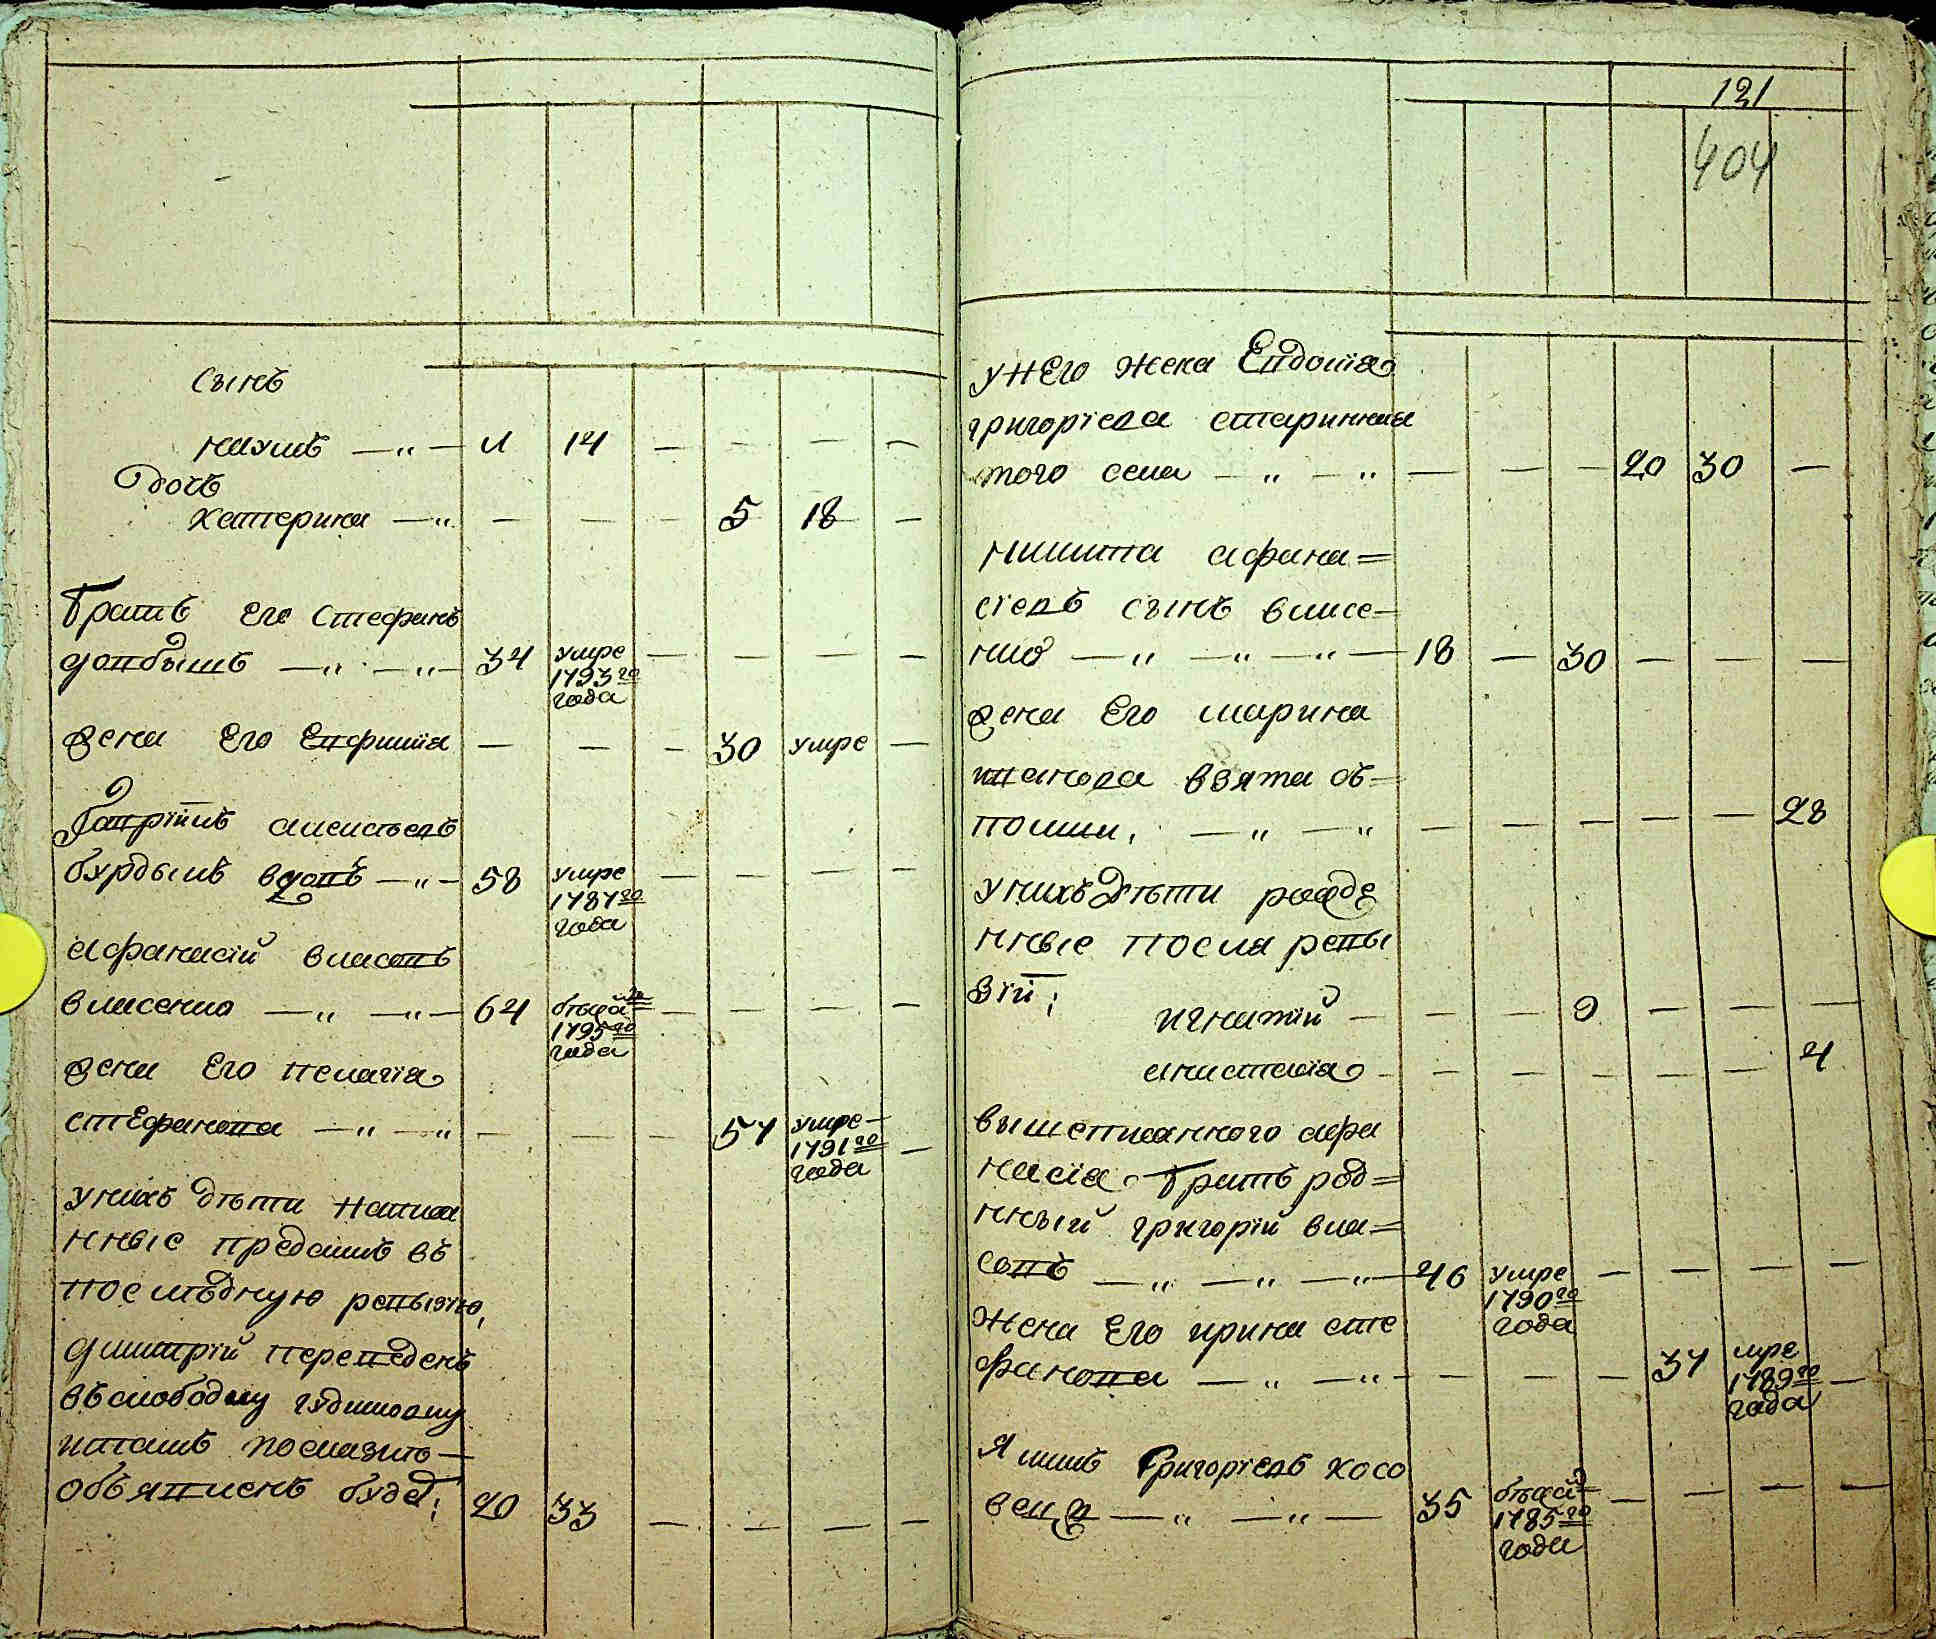 сынъ
наумъ — „ — 1 14 — — — —
дочь
катерина — „ — — — 5 18 —
братъ его стефанъ
довбышъ — „ — „ — 34 умре — — — —
1793 го
года
жена его евфимiя — — — 30 умре —
гаврiилъ алексѣевъ
бурдымъ вдовъ — „ — 58 умре — — — —
1787 го
года
афанасiй власовъ
власенко — „ — „ — 64 бѣжа — — — —
1795 го
года
жена его пелагiя
стефанова — „ — „ — — — 57 умре —
1791 го
года
унихъ дѣти написа
нные предашъ въ
последную ревизiю,
димитрiй переведенъ
въ слободку
объявленъ будет; 20 33 — — — —
121
404
унего жена Евдокiя
григорiева старинная
того села — „ — „ — — — 20 30 —
никита афана=
сiевъ сынъ власе=
нко — „ — „ — „ — 18 — 30 — — —
жена его марина
иванова взята въ
полши, — „ — „ — — — — — 28
унихъ дѣти рожде
нные посля реви
зiи;
игнатiй — — — 9 — — —
анастасiя — — — — — — 4
вышеписанного афа
насiя братъ род=
нный григорiй вла=
совъ — „ — „ — „ — 46 умре — — — —
1790 го
года
жена его ирина сте
фанова — „ — „ — — — 37 умре —
1789 го
года
якимъ григорiевъ косо
венко — „ — „ — 35 бѣжа — — — —
1785 го
года